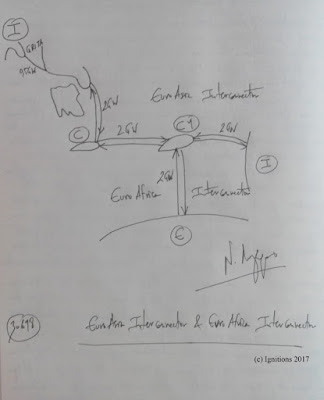 I
GRITA
95GW
2GW
EuroAsia Interconnector
C
2GW
CY
2GW
I
2GW
EuroAfrica Interconnector
E
EuroAsia Interconnector & EuroAfrica Interconnector
(c) Ignitions 2017